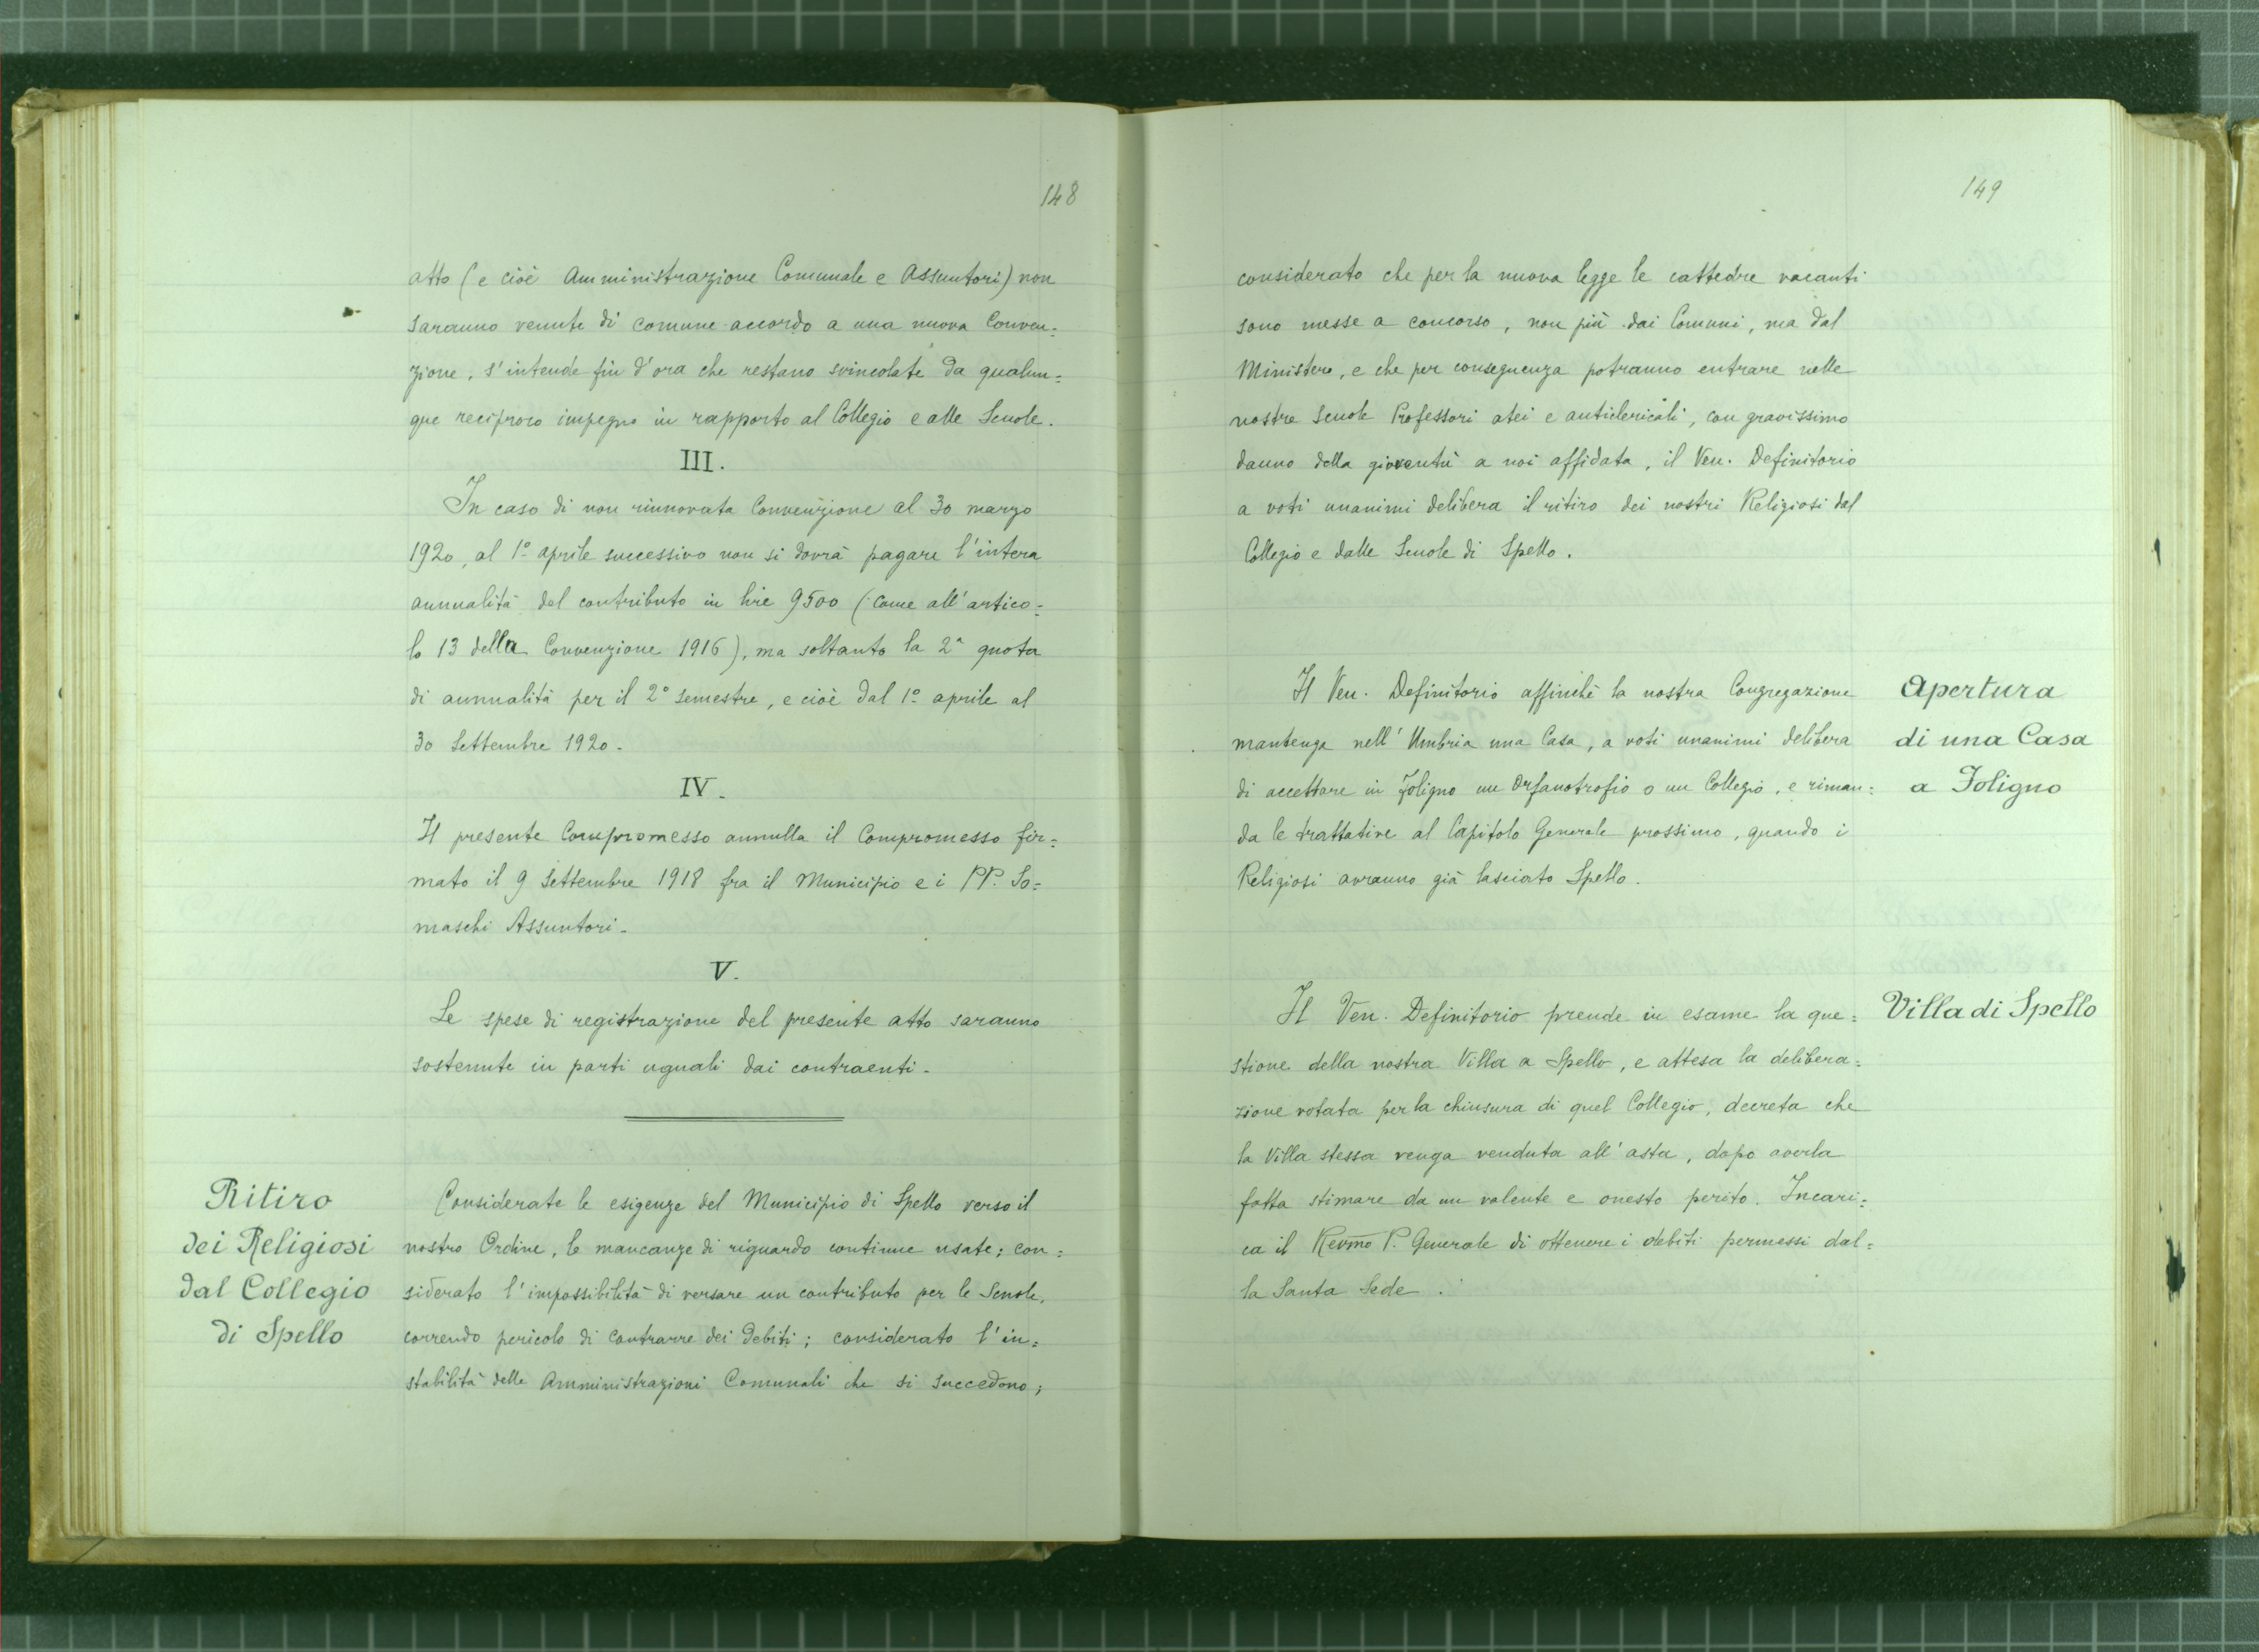 148
atto (e cioè Amministrazione Comunale e Assuntori) non
saranno venute di comune accordo a una nuova Conven=
zione, s'intende fin d'ora che restano svincolate da qualun=
que reciproco impegno in rapporto al Collegio e alle Scuole.
III.
In caso di non rinnovata Convenzione al 30 marzo
1920, al 1º aprile successivo non si dovrà pagare l'intera
annualità del contributo in lire 9500 (come all'artico=
lo 13 della Convenzione 1916), ma soltanto la 2ª quota
di annualità per il 2º semestre, e cioè dal 1º aprile al
30 Settembre 1920.
IV.
Il presente Compromesso annulla il Compromesso fir=
mato il 9 Settembre 1918 fra il Municipio e i PP. So=
maschi Assuntori.
V.
Le spese di registrazione del presente atto saranno
sostenute in parti uguali dai contraenti.
Ritiro
dei Religiosi
dal Collegio
di Spello
Considerate le esigenze del Municipio di Spello verso il
nostro Ordine, le mancanze di riguardo continue usate; con=
siderato l'impossibilità di versare un contributo per le Scuole,
correndo pericolo di contrarre dei debiti; considerato l'in=
stabilità delle Amministrazioni Comunali che si succedono;
149
considerato che per la nuova legge le cattedre vacanti
sono messe a concorso, non più dai Comuni, ma dal
Ministero, e che per conseguenza potranno entrare nelle
nostre Scuole Professori atei e anticlericali, con gravissimo
danno della gioventù a noi affidata, il Ven. Definitorio
a voti unanimi delibera il ritiro dei nostri Religiosi dal
Collegio e dalle Scuole di Spello.
Apertura
di una Casa
a Foligno
Il Ven. Definitorio affinchè la nostra Congregazione
mantenga nell'Umbria una Casa, a voti unanimi delibera
di accettare in Foligno un Orfanotrofio o un Collegio, e riman=
da le trattative al Capitolo Generale prossimo, quando i
Religiosi avranno già lasciato Spello.
Villa di Spello
Il Ven. Definitorio prende in esame la que=
stione della nostra Villa a Spello, e attesa la delibera=
zione votata per la chiusura di quel Collegio, decreta che
la Villa stessa venga venduta all'asta, dopo averla
fatta stimare da un valente e onesto perito. Incari=
ca il Revmo P. Generale di ottenere i debiti permessi dal=
la Santa Sede.